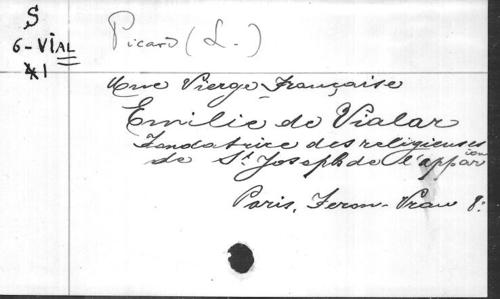 S
6-VIAL
41
Picard (L.)
Une Vierge Française
Emilie de Vialar
Fondatrice des religieuses
de St. Joseph de l'apparition
Paris, Feron-Vrau 8: